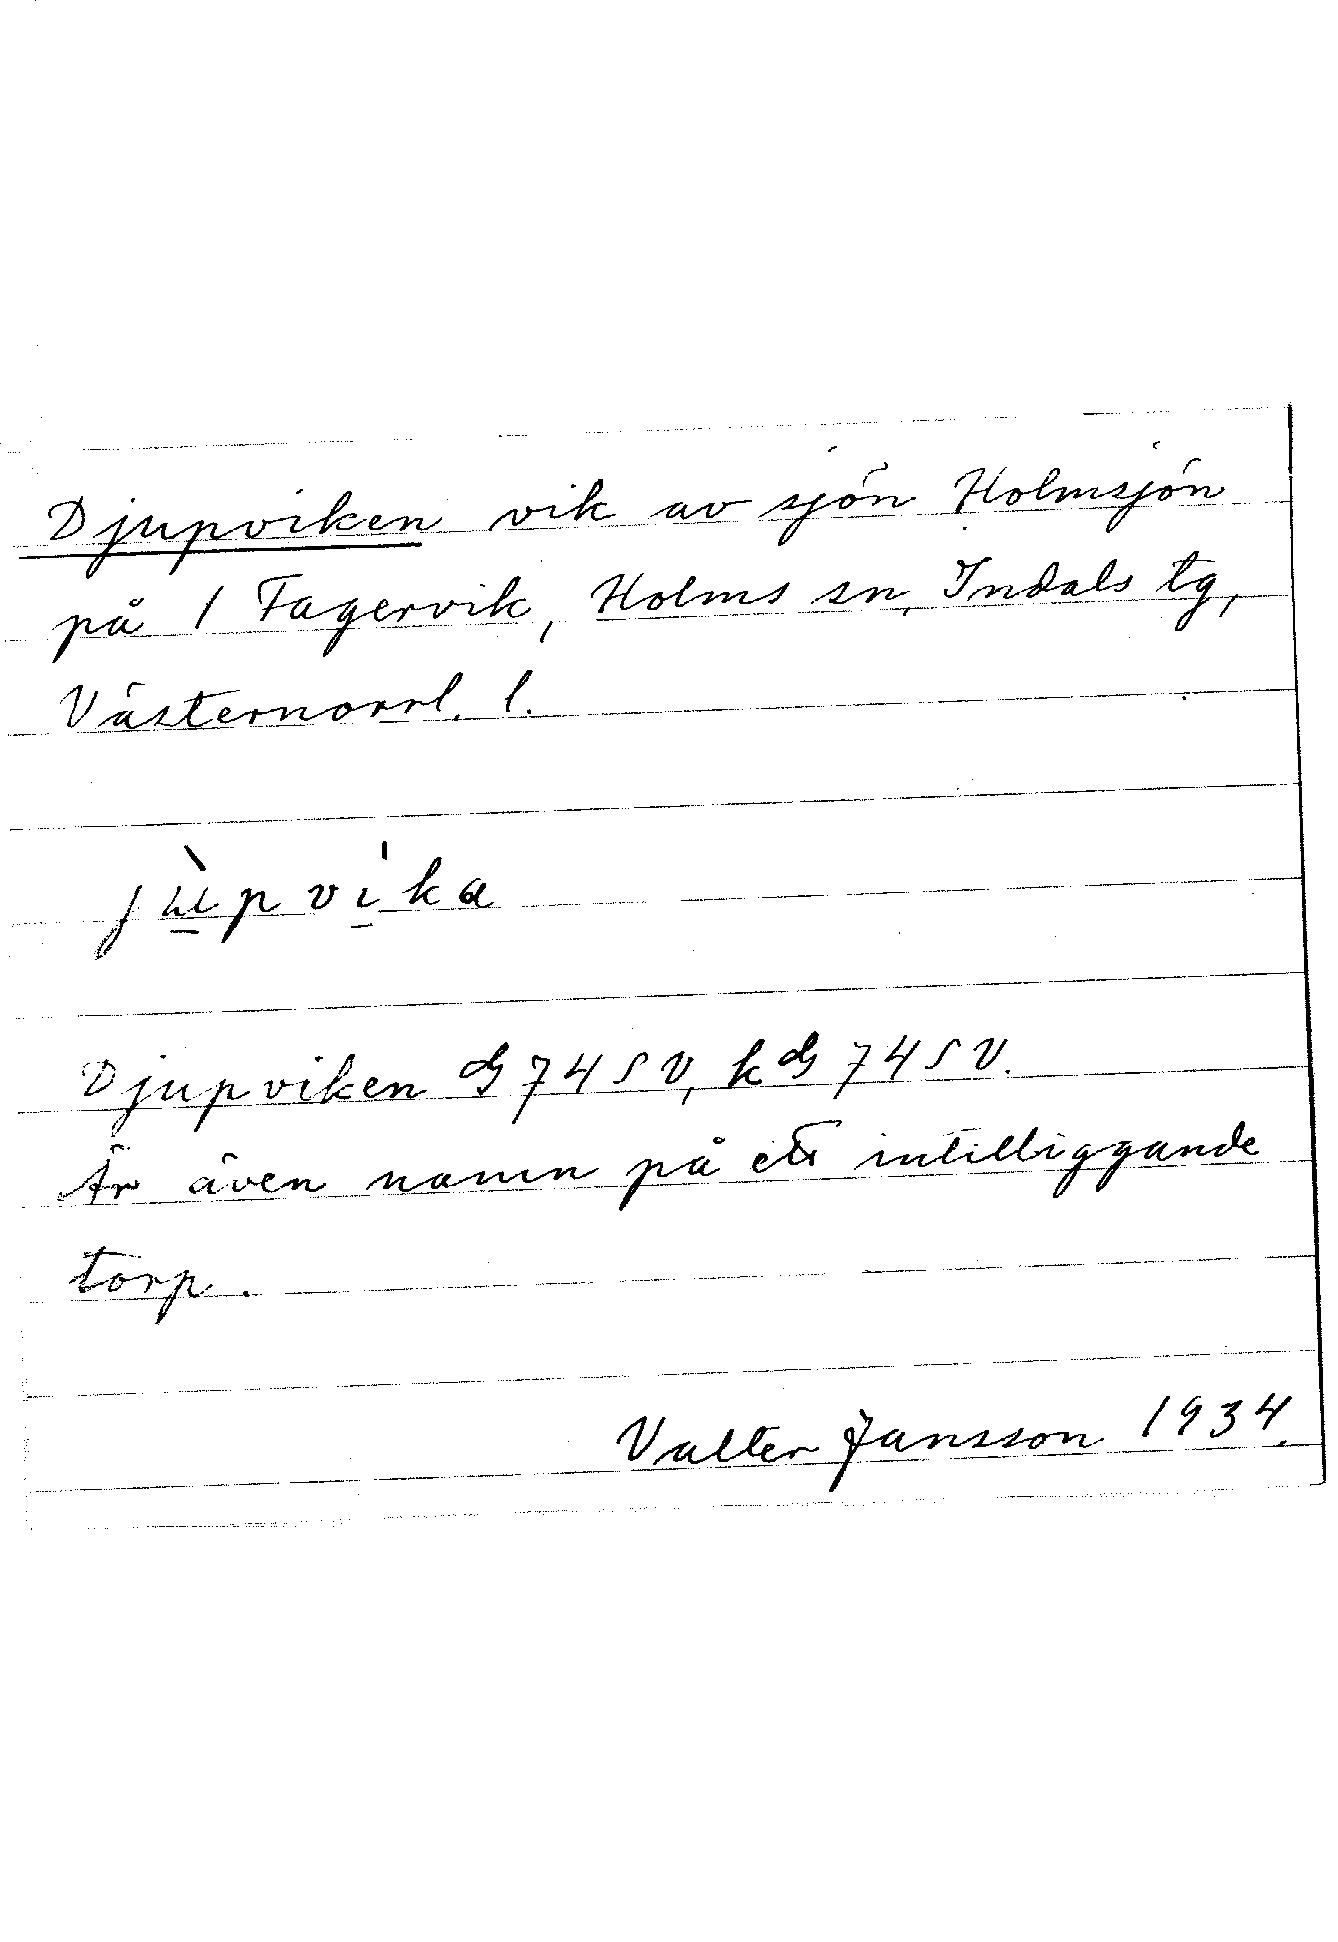 Djupviken vik av sjön Holmsjön
på 1 Fagervik, Holms sn, Indals tg,
Västernorrl. l.
jùpvika
Djupviken 74 SV, k 74 SV.
Är även namn på ett intilliggande
torp.
Valter Jansson 1934.